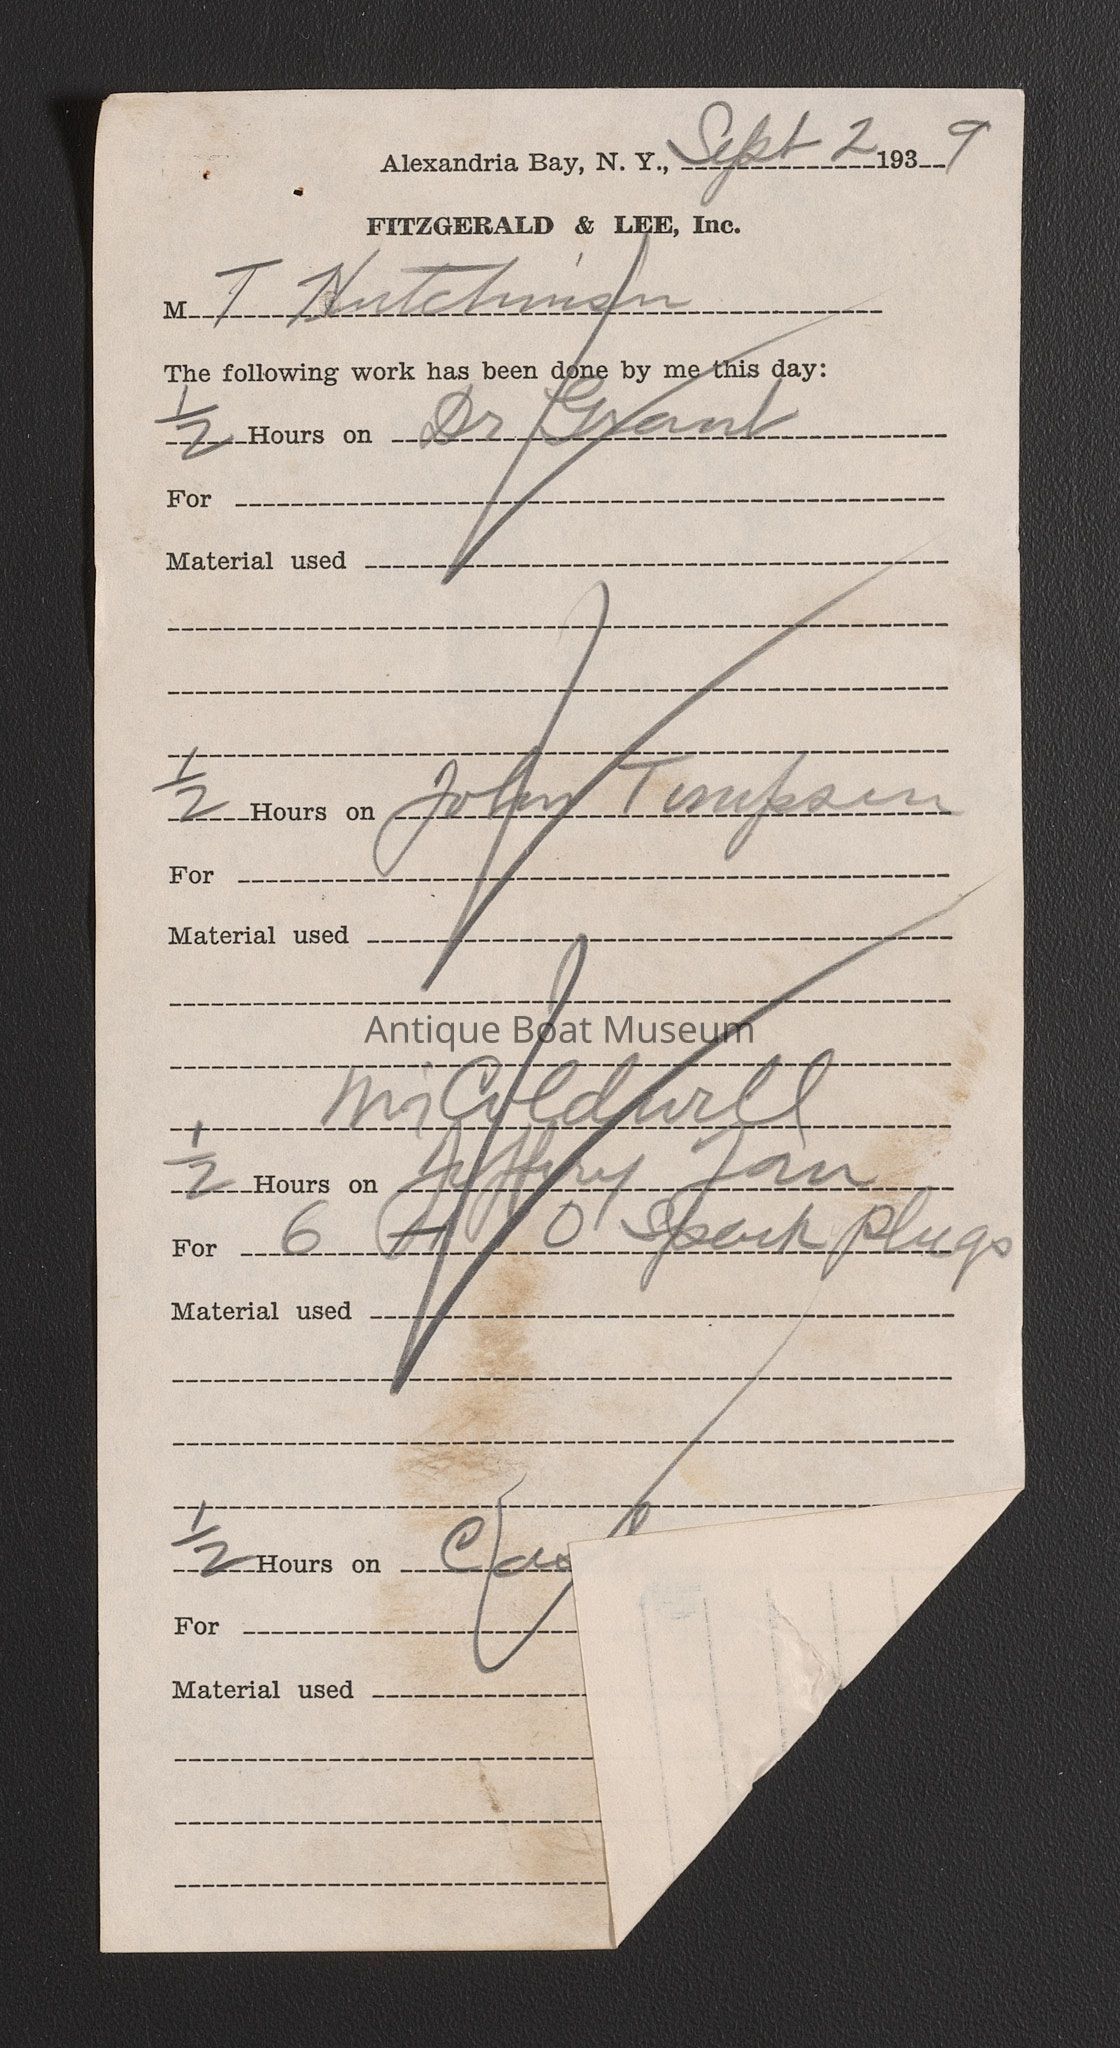 Alexandria Bay, N. Y., Sept 2 1939
FITZGERALD & LEE, Inc.
M T Hutchinson
The following work has been done by me this day:
1/2 Hours on Dr Grant
For
Material used
1/2 Hours on John Timpson
For
Material used
Antique Boat Museum
Coldwell
1/2 Hours on Jeffery
For 6 A O Spark plugs
Material used
1/2 Hours on
For
Material used